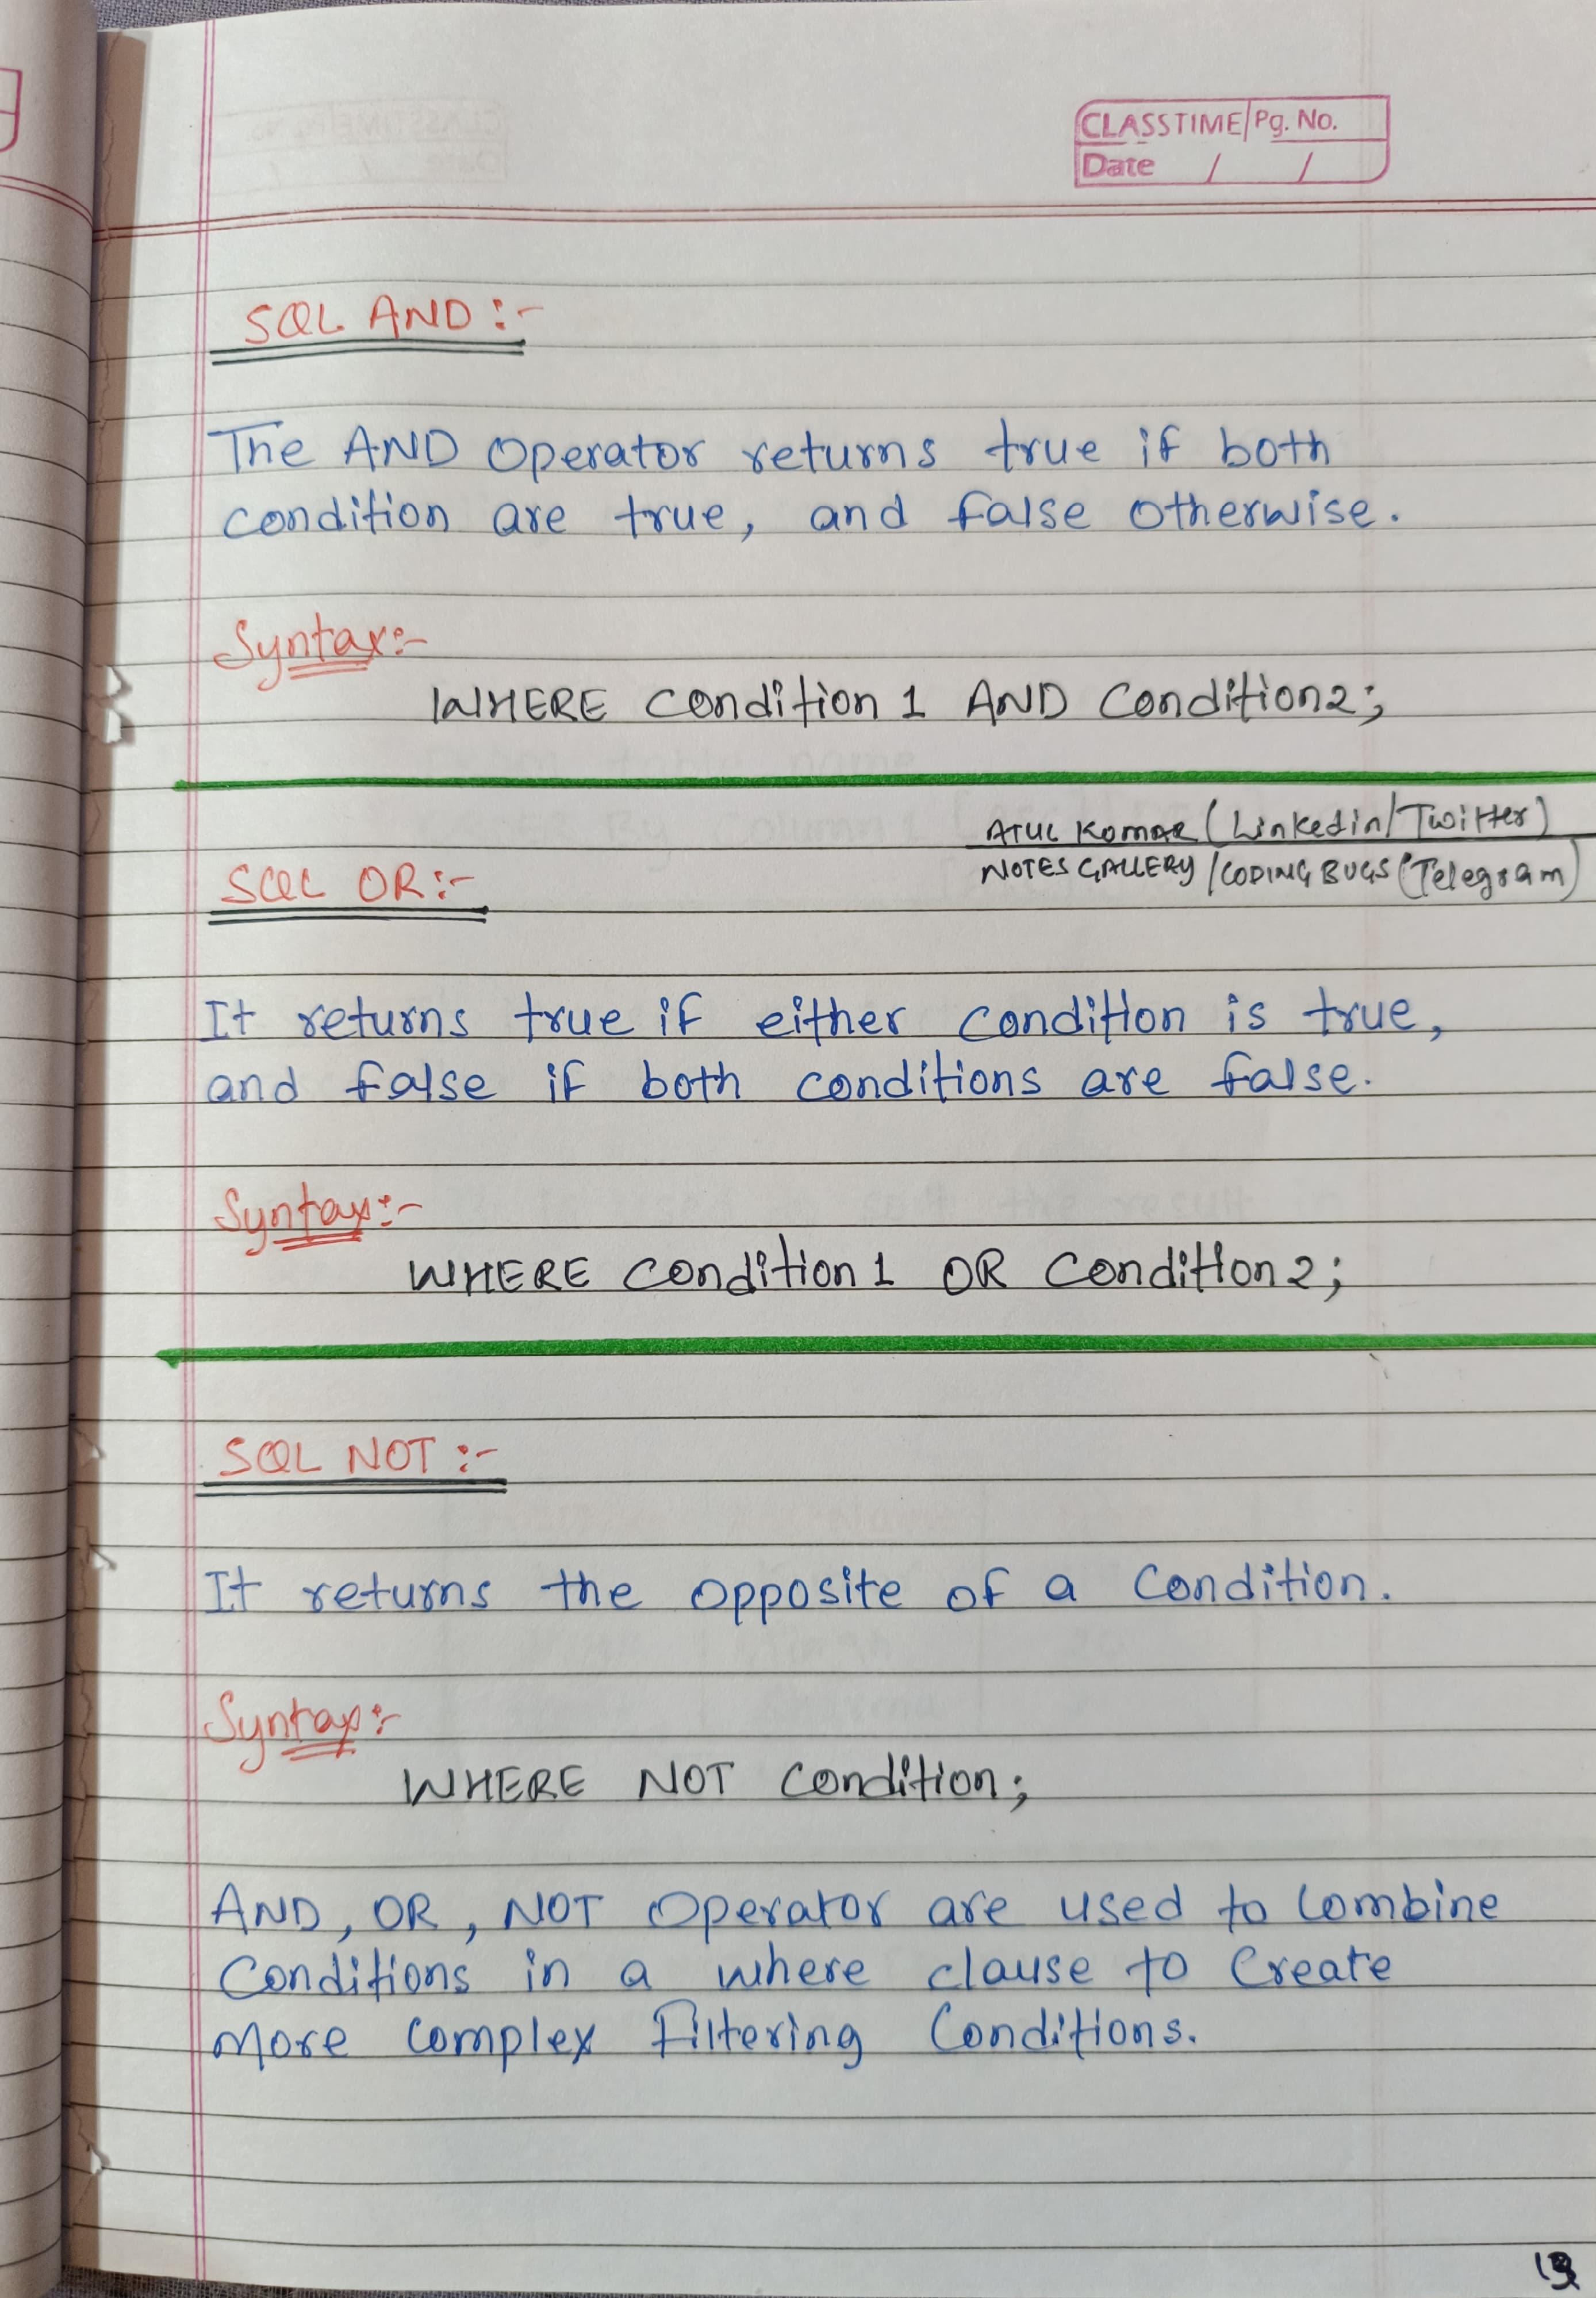 CLASSTIME Pg. No.
Date / /
SQL AND :-
The AND Operator returns true if both
condition are true, and false otherwise.
Syntax:-
WHERE Condition 1 AND Condition2;
ATUL KUMAR (Linkedin/Twitter)
NOTES GALLERY / CODING BUGS (Telegram)
SQL OR:-
It returns true if either condition is true,
and false if both conditions are false.
Syntax:-
WHERE Condition 1 OR Condition 2;
SQL NOT :-
It returns the opposite of a Condition.
Syntax:-
WHERE NOT Condition;
AND, OR, NOT Operator are used to Combine
Conditions in a where clause to Create
More Complex Filtering Conditions.